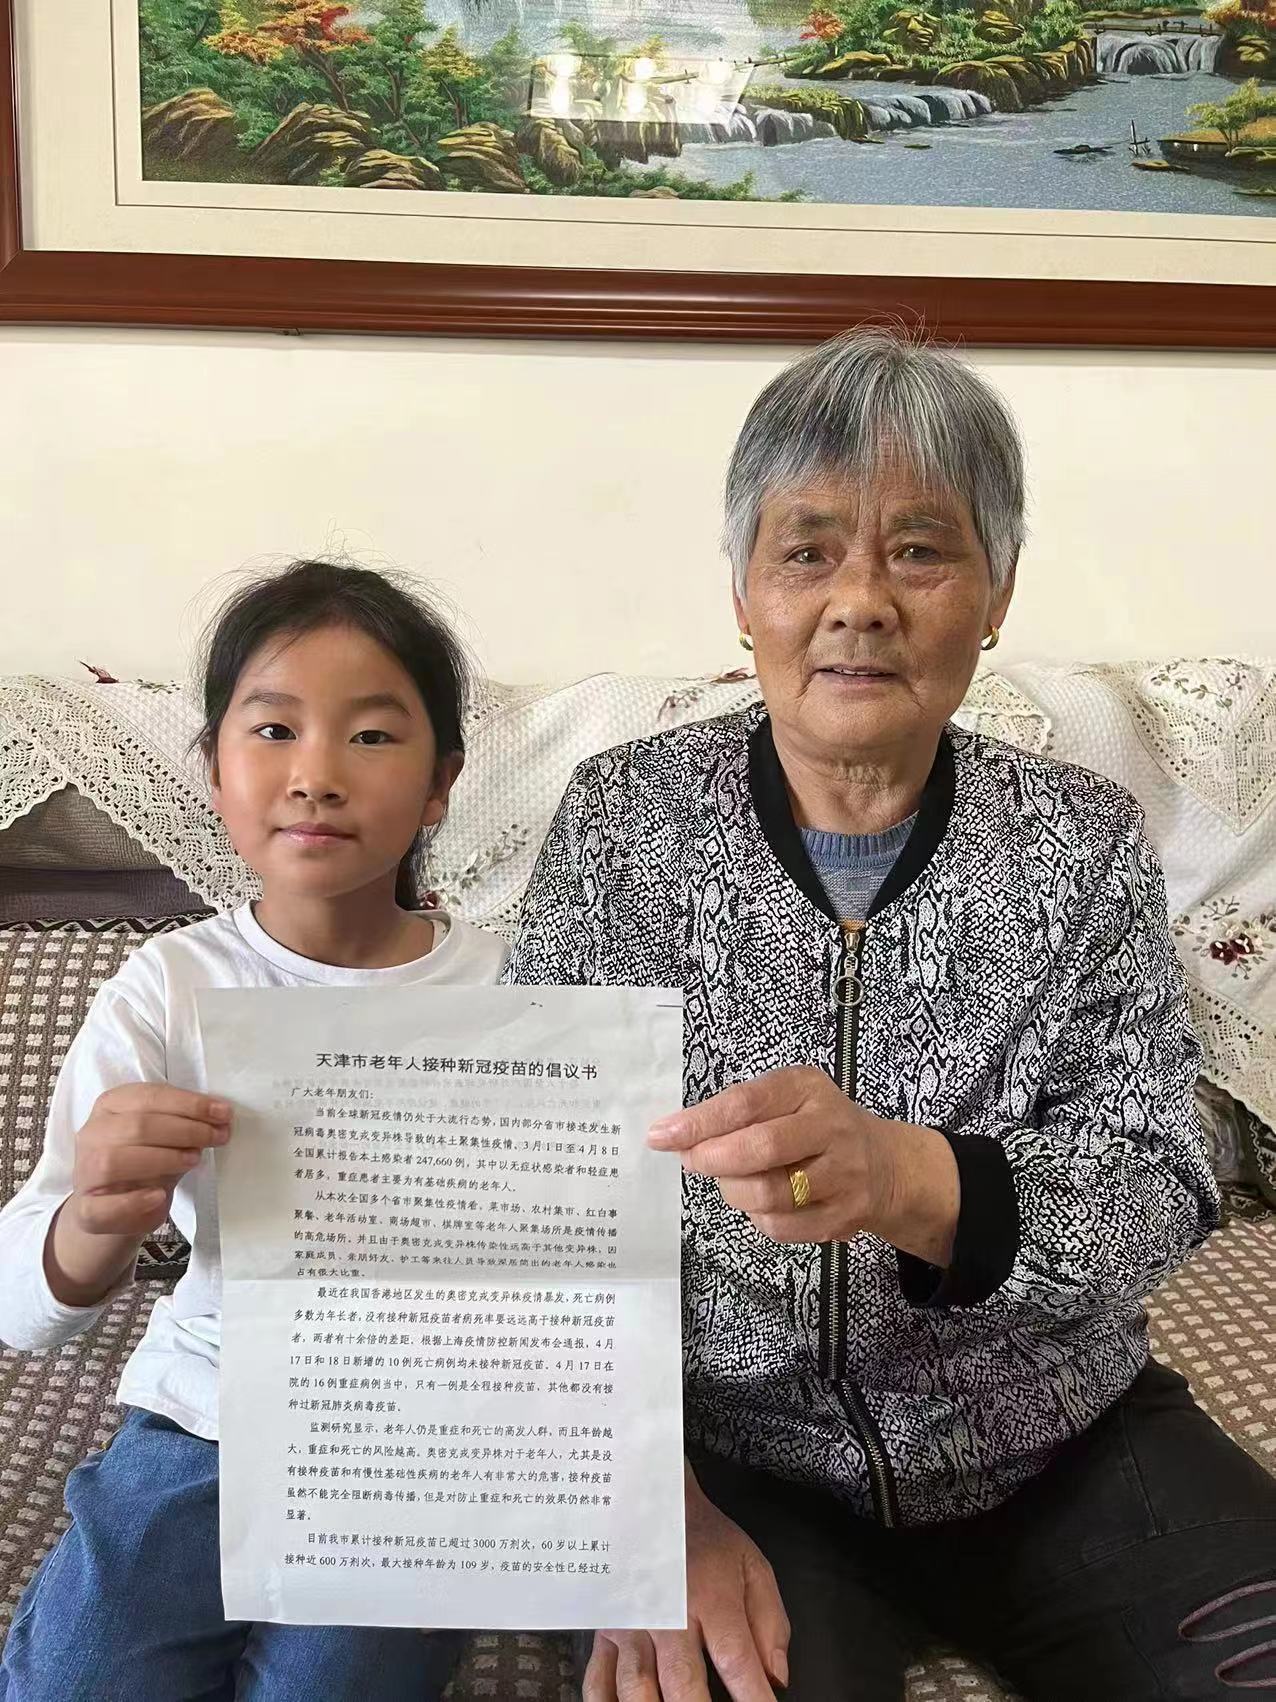 天津市老年人接种新冠疫苗的倡议书
广大老年朋友们：
当前全球新冠疫情仍处于大流行态势，国内部分省市接连发生新
冠病毒奥密克戎变异株导致的本土聚集性疫情。3月1日至4月8日
全国累计报告本土感染者247,660例，其中以无症状感染者和轻症患
者居多，重症患者主要为有基础疾病的老年人。
从本次全国多个省市聚集性疫情看，菜市场、农村集市、红白事
聚餐、老年活动室、商场超市、棋牌室等老年人聚集场所是疫情传播
的高危场所。并且由于奥密克戎变异株传染性远高于其他变异株，因
家庭成员、亲朋好友、护工等来往人员导致深居简出的老年人感染也
占有很大比重。
最近在我国香港地区发生的奥密克戎变异株疫情暴发，死亡病例
多数为年长者，没有接种新冠疫苗者病死率要远远高于接种新冠疫苗
者，两者有十余倍的差距。根据上海疫情防控新闻发布会通报，4月
17日和18日新增的10例死亡病例均未接种新冠疫苗。4月17日在
院的16例重症病例当中，只有一例是全程接种疫苗，其他都没有接
种过新冠肺炎病毒疫苗。
监测研究显示，老年人仍是重症和死亡的高发人群，而且年龄越
大，重症和死亡的风险越高。奥密克戎变异株对于老年人，尤其是没
有接种疫苗和有慢性基础性疾病的老年人有非常大的危害，接种疫苗
虽然不能完全阻断病毒传播，但是对防止重症和死亡的效果仍然非常
显著。
目前我市累计接种新冠疫苗已超过3000万剂次，60岁以上累计
接种近600万剂次，最大接种年龄为109岁，疫苗的安全性已经过充